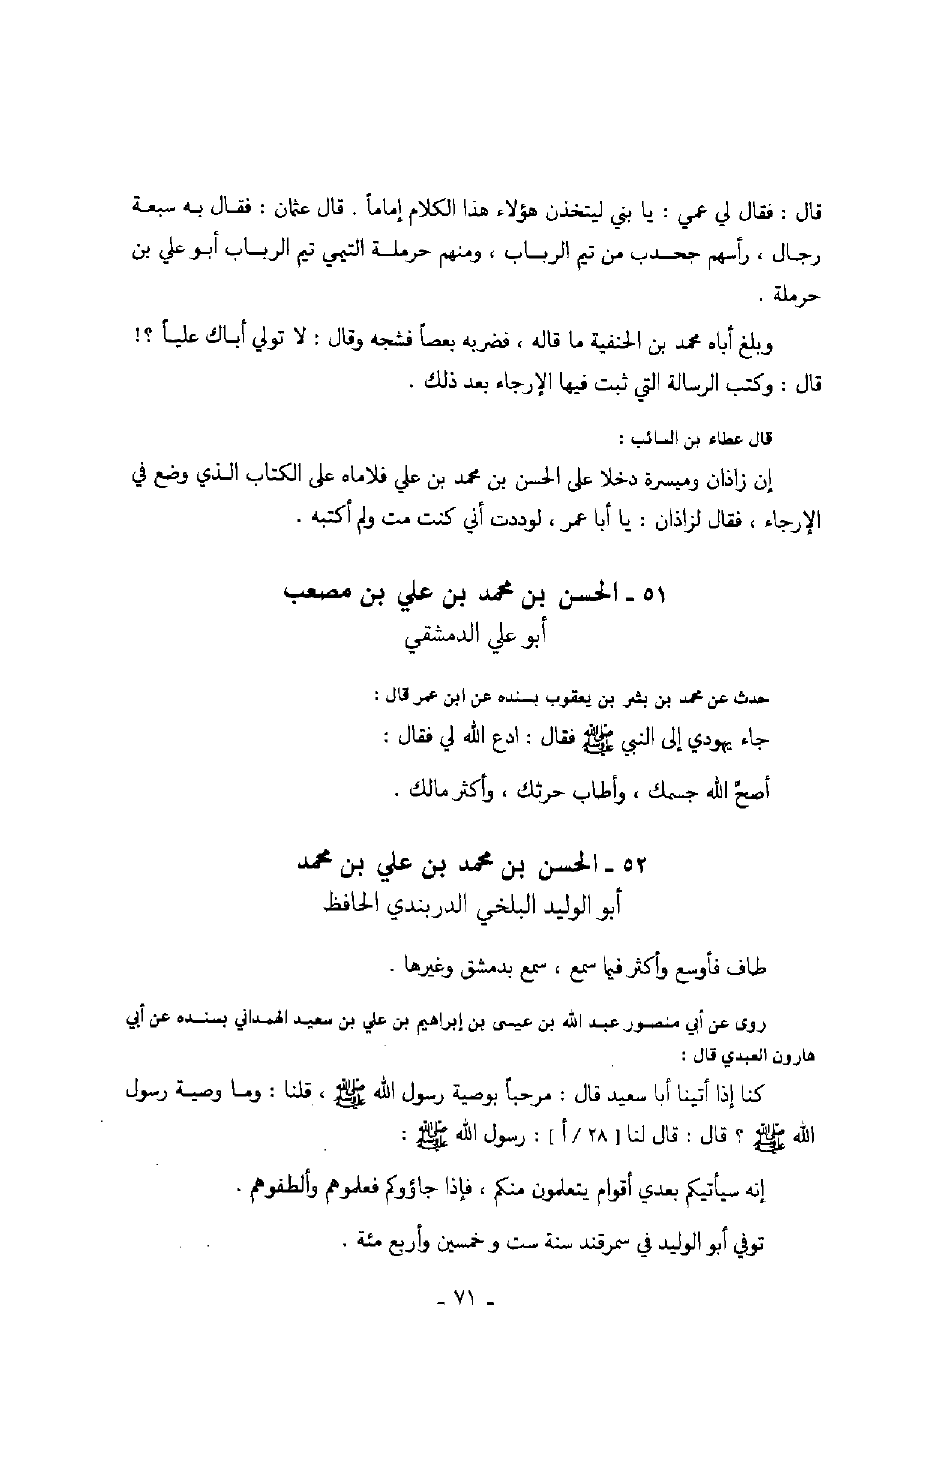 قال : فقال لي عمي : يا بني ليتخذن هؤلاء هذا الكلام إماماً . قال عثمان : فقال به سبعة
رجال ، رأسهم جحدب من تيم الرباب ، ومنهم حرملة التيمي تيم الرباب أبو علي بن
حرملة .
وبلغ أباه محمد بن الحنفية ما قاله ، فضربه بعصاً فشجه وقال : لا تولي أباك علياً ؟!
قال : وكتب الرسالة التي ثبت فيها الإرجاء بعد ذلك .
قال عطاء بن السائب :
إن زاذان وميسرة دخلا على الحسن بن محمد بن علي فلاماه على الكتاب الذي وضع في
الإرجاء ، فقال لزاذان : يا أبا عمر ، لوددت أني كنت مت ولم أكتبه .
٥١ ـ الحسن بن محمد بن علي بن مصعب
أبو علي الدمشقي
حدث عن محمد بن بشر بن يعقوب بسنده عن ابن عمر قال :
جاء يهودي إلى النبي ﷺ فقال : ادع الله لي فقال :
أصحَّ الله جسمك ، وأطاب حرثك ، وأكثر مالك .
٥٢ ـ الحسن بن محمد بن علي بن محمد
أبو الوليد البلخي الدربندي الحافظ
طاف فأوسع وأكثر فيما سمع ، سمع بدمشق وغيرها .
روى عن أبي منصور عبد الله بن عيسى بن إبراهيم بن علي بن سعيد الهمداني بسنده عن أبي
هارون العبدي قال :
كنا إذا أتينا أبا سعيد قال : مرحباً بوصية رسول الله ﷺ ، قلنا : وما وصية رسول
الله ﷺ ؟ قال : قال لنا [ ٢٨ / أ ] : رسول الله ﷺ :
إنه سيأتيكم بعدي أقوام يتعلمون منكم ، فإذا جاؤوكم فعلموهم وألطفوهم .
توفي أبو الوليد في سمرقند سنة ست وخمسين وأربع مئة .
ـ ٧١ ـ